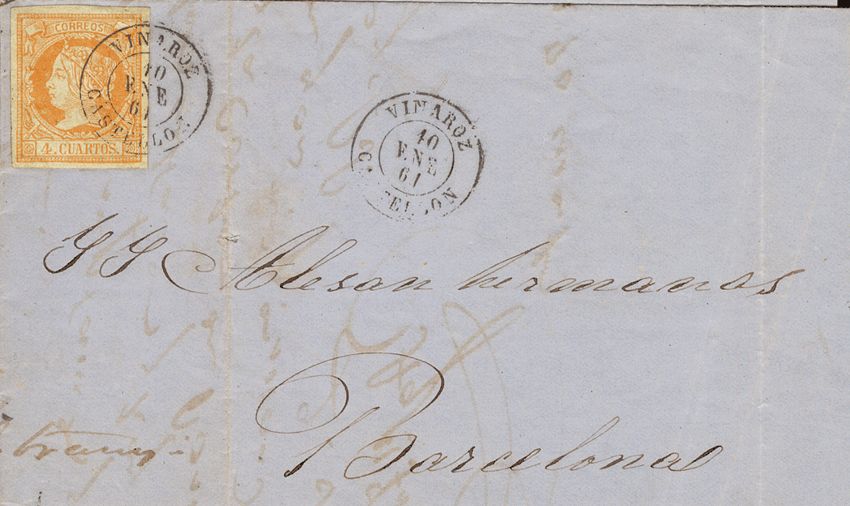 CORREOS
4 CUARTOS.
VINAROZ
10
ENE
61
CASTELLON
VINAROZ
10
ENE
61
CASTELLON
SS Alesan hermanos
Barcelona